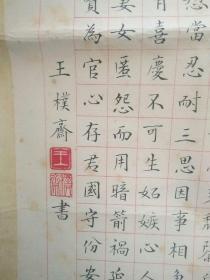 當忍耐三思因事相
有喜慶不可生妬嫉心人
妻女匿怨而用暗箭禍延
為官心存君國守份安
王樸齋
王
書